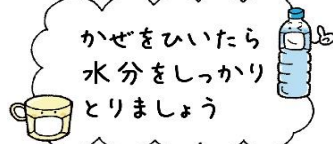 かぜをひいたら
水分をしっかり
とりましょう